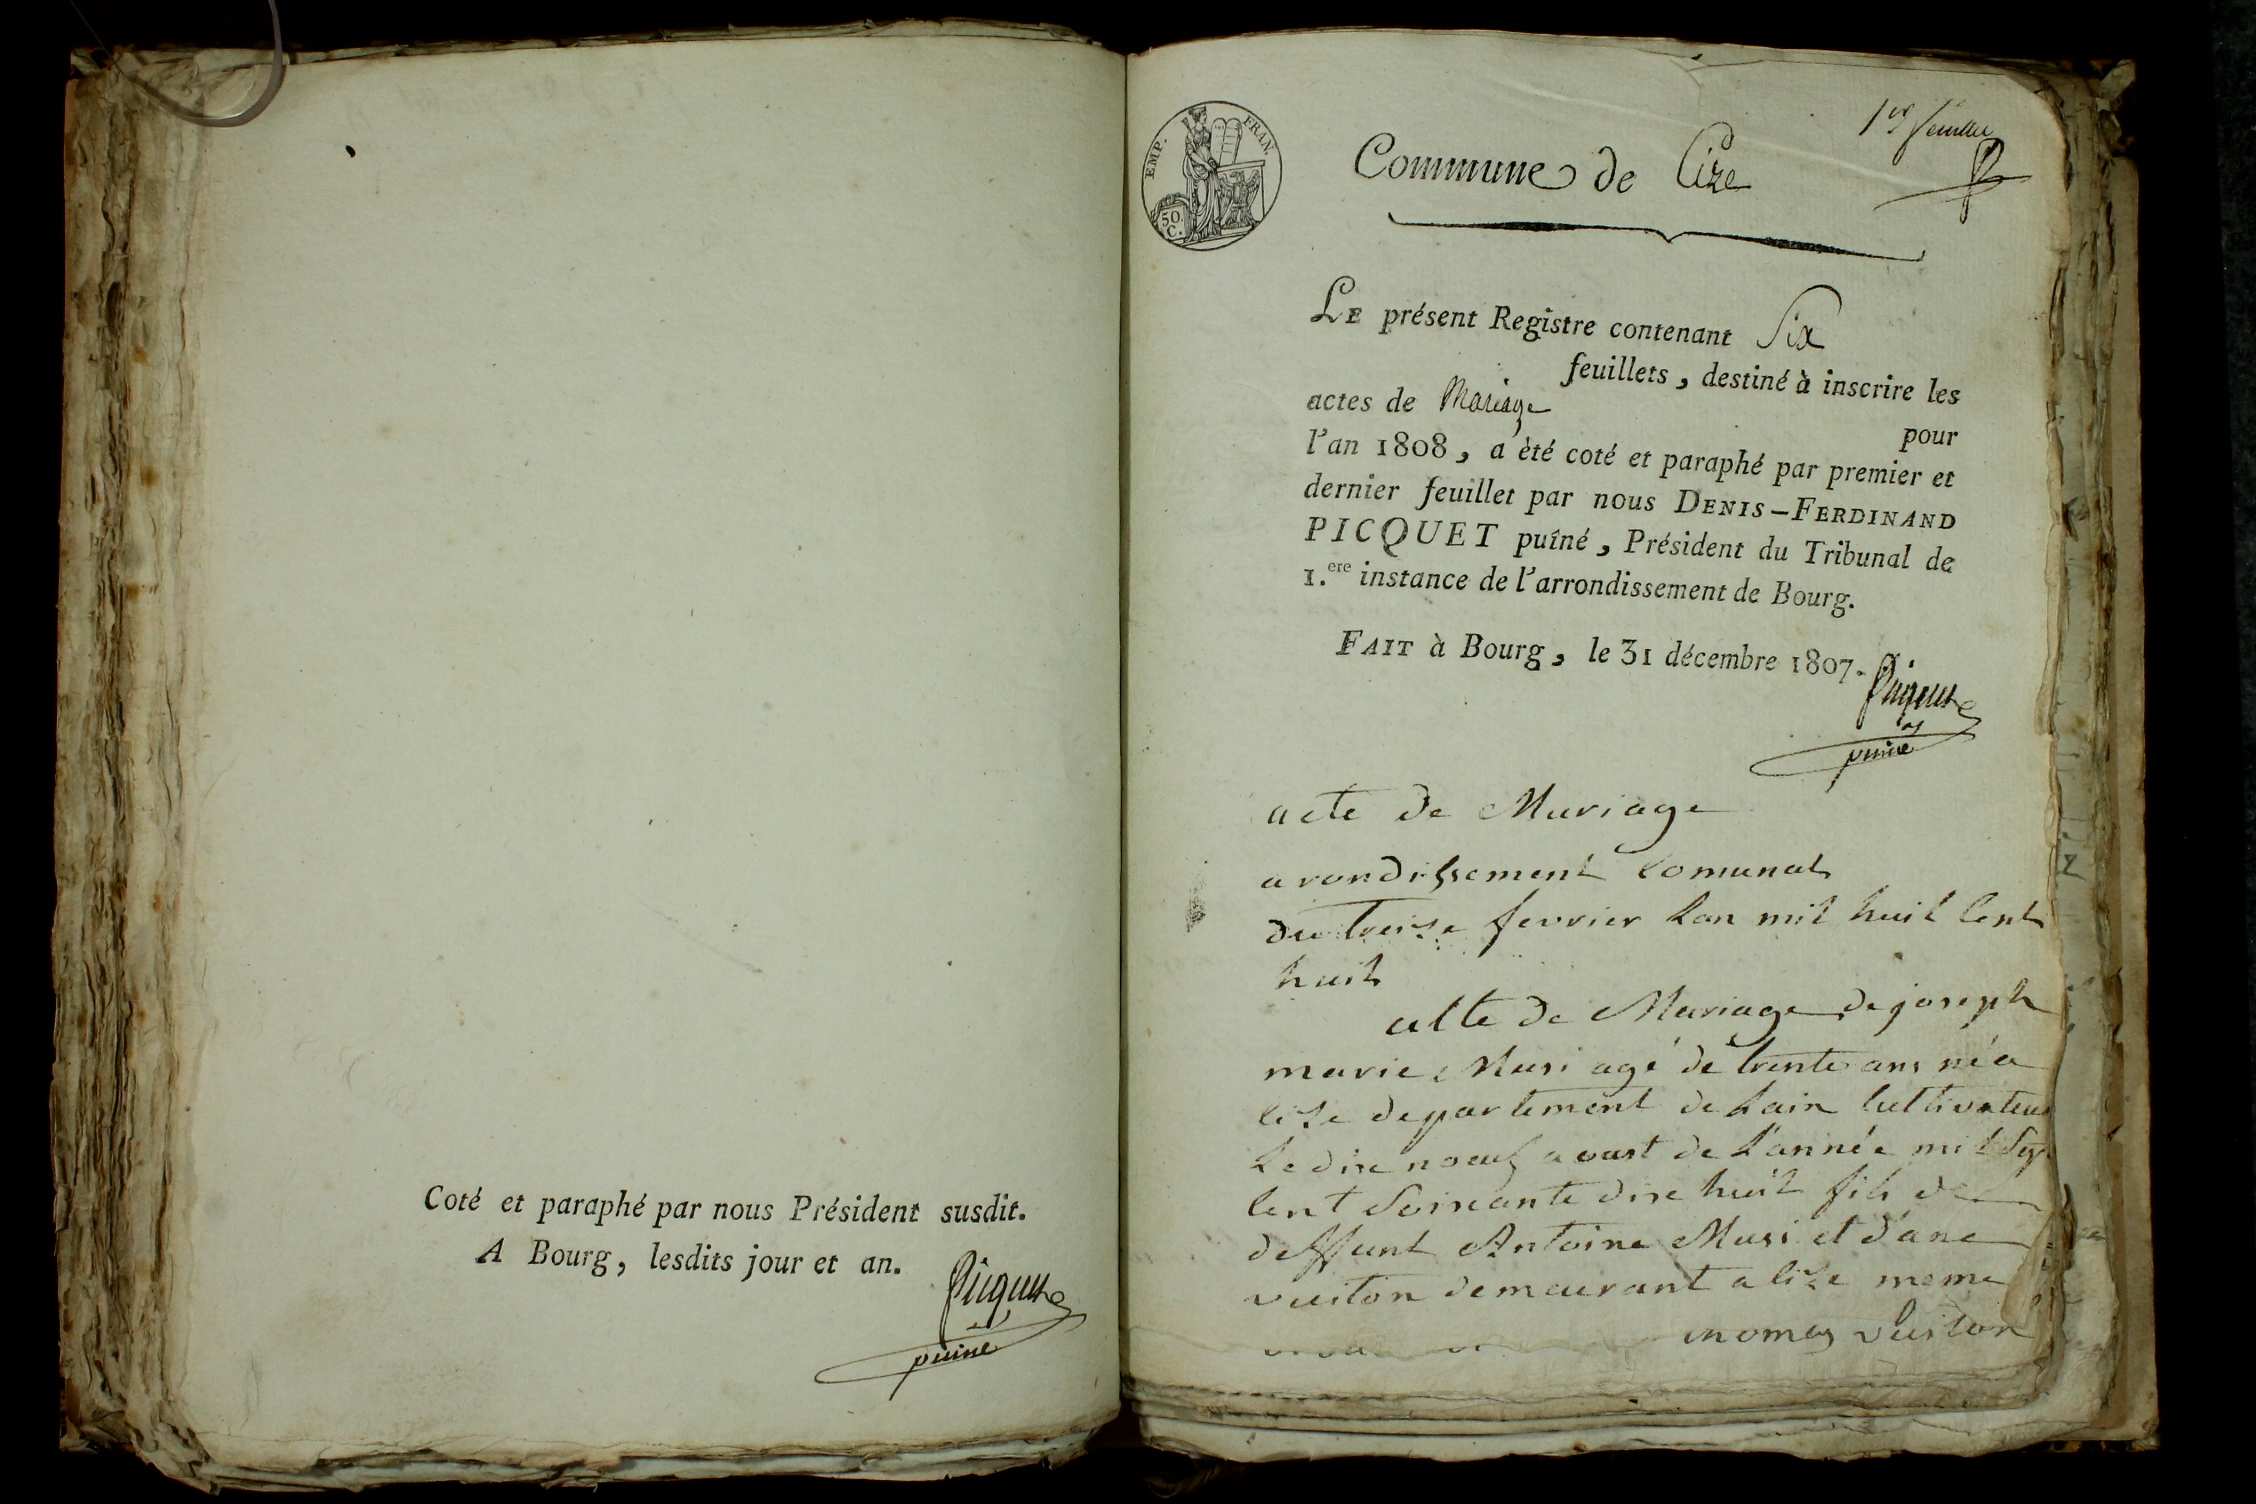 Coté et paraphé par nous Président susdit.
A Bourg, lesdits jour et an.
Picquet
puîné
EMP. FRAN.
50.
C.
1er feuillet
Commune de Cize
LE présent Registre contenant Six
feuillets, destiné à inscrire les
actes de Mariage
pour
l'an 1808, a été coté et paraphé par premier et
dernier feuillet par nous DENIS-FERDINAND
PICQUET puîné, Président du Tribunal de
1.ere instance de l'arrondissement de Bourg.
FAIT à Bourg, le 31 décembre 1807.
Picquet
puîné
acte de Mariage
arondissement Comunal
du treize fevrier Lan mil huit Cent
huit
acte de Mariage de joseph
marie Musi agé de trente ans né a
Cize departement de Lain Cultivateur
Le dix noeuf aoust de L'année mil Sep
Cent Soixante dix huit fils de
deffunt Antoine Musi et d'ane
vuiton demeurant a Cize meme
vuiton